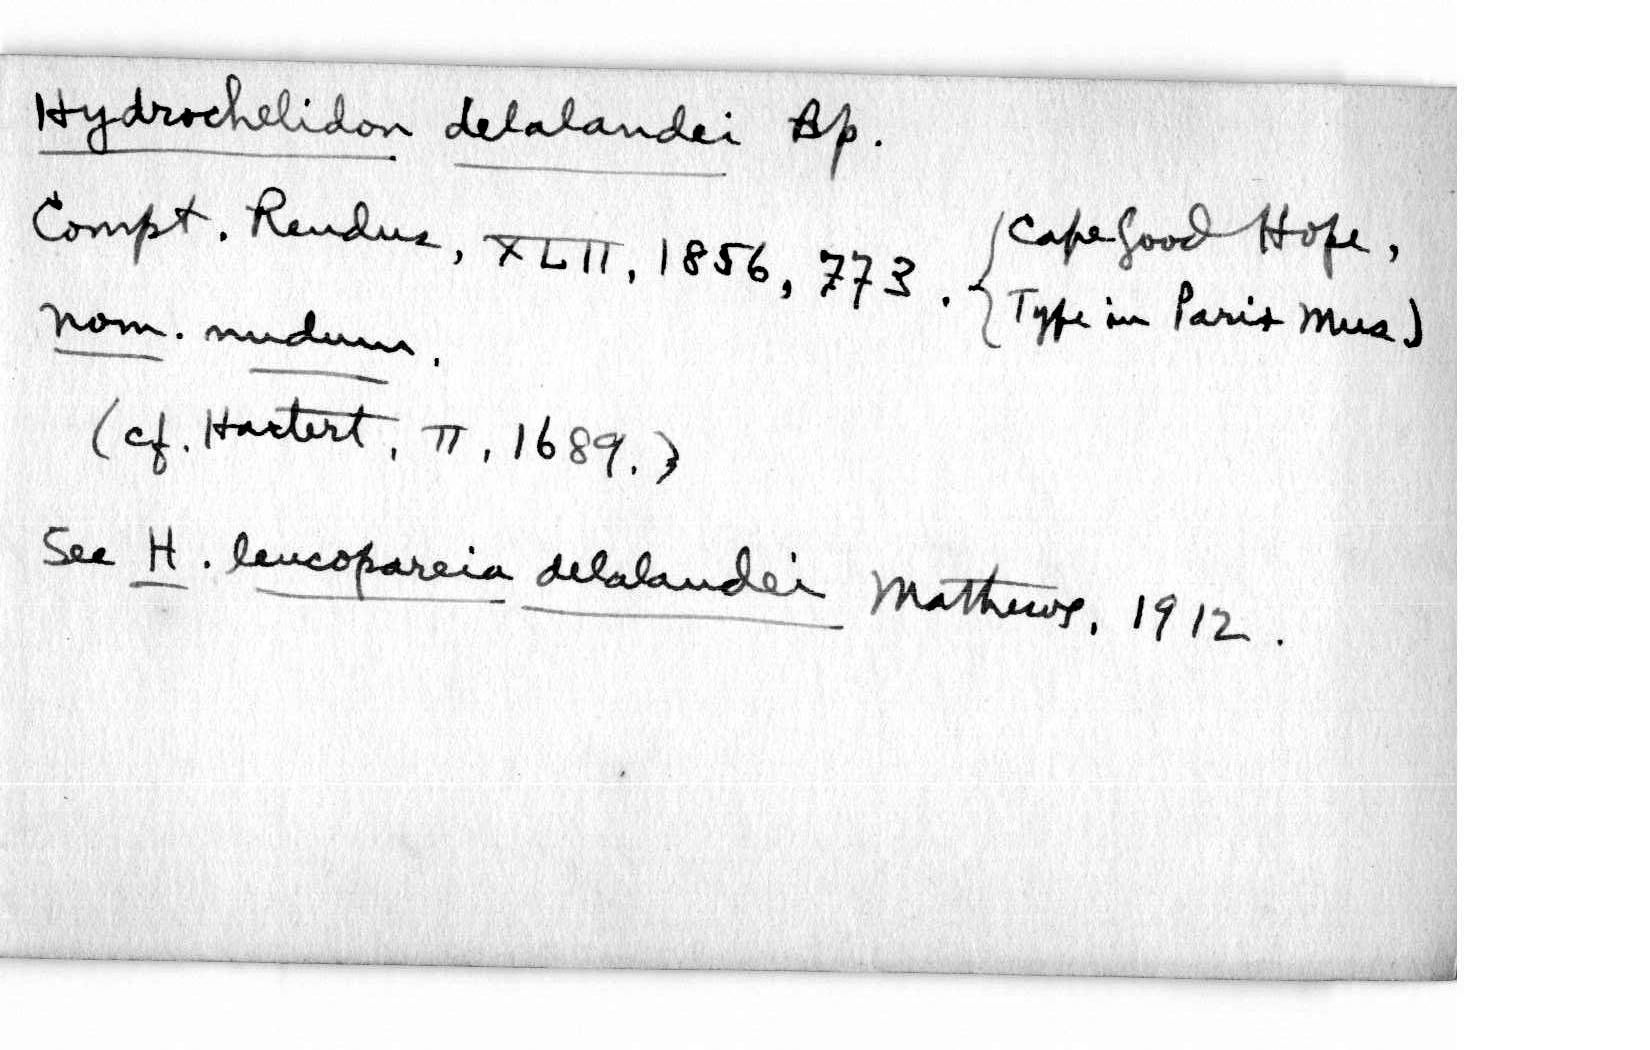 Hydrochelidon delalandei Bp.
Compt. Rendus, XLII, 1856, 773. {Cape Good Hope,
Type in Paris Mus.)
nom. nudum.
(cf. Hartert, II, 1689.)
See H. leucopareia delalandei Mathews, 1912.